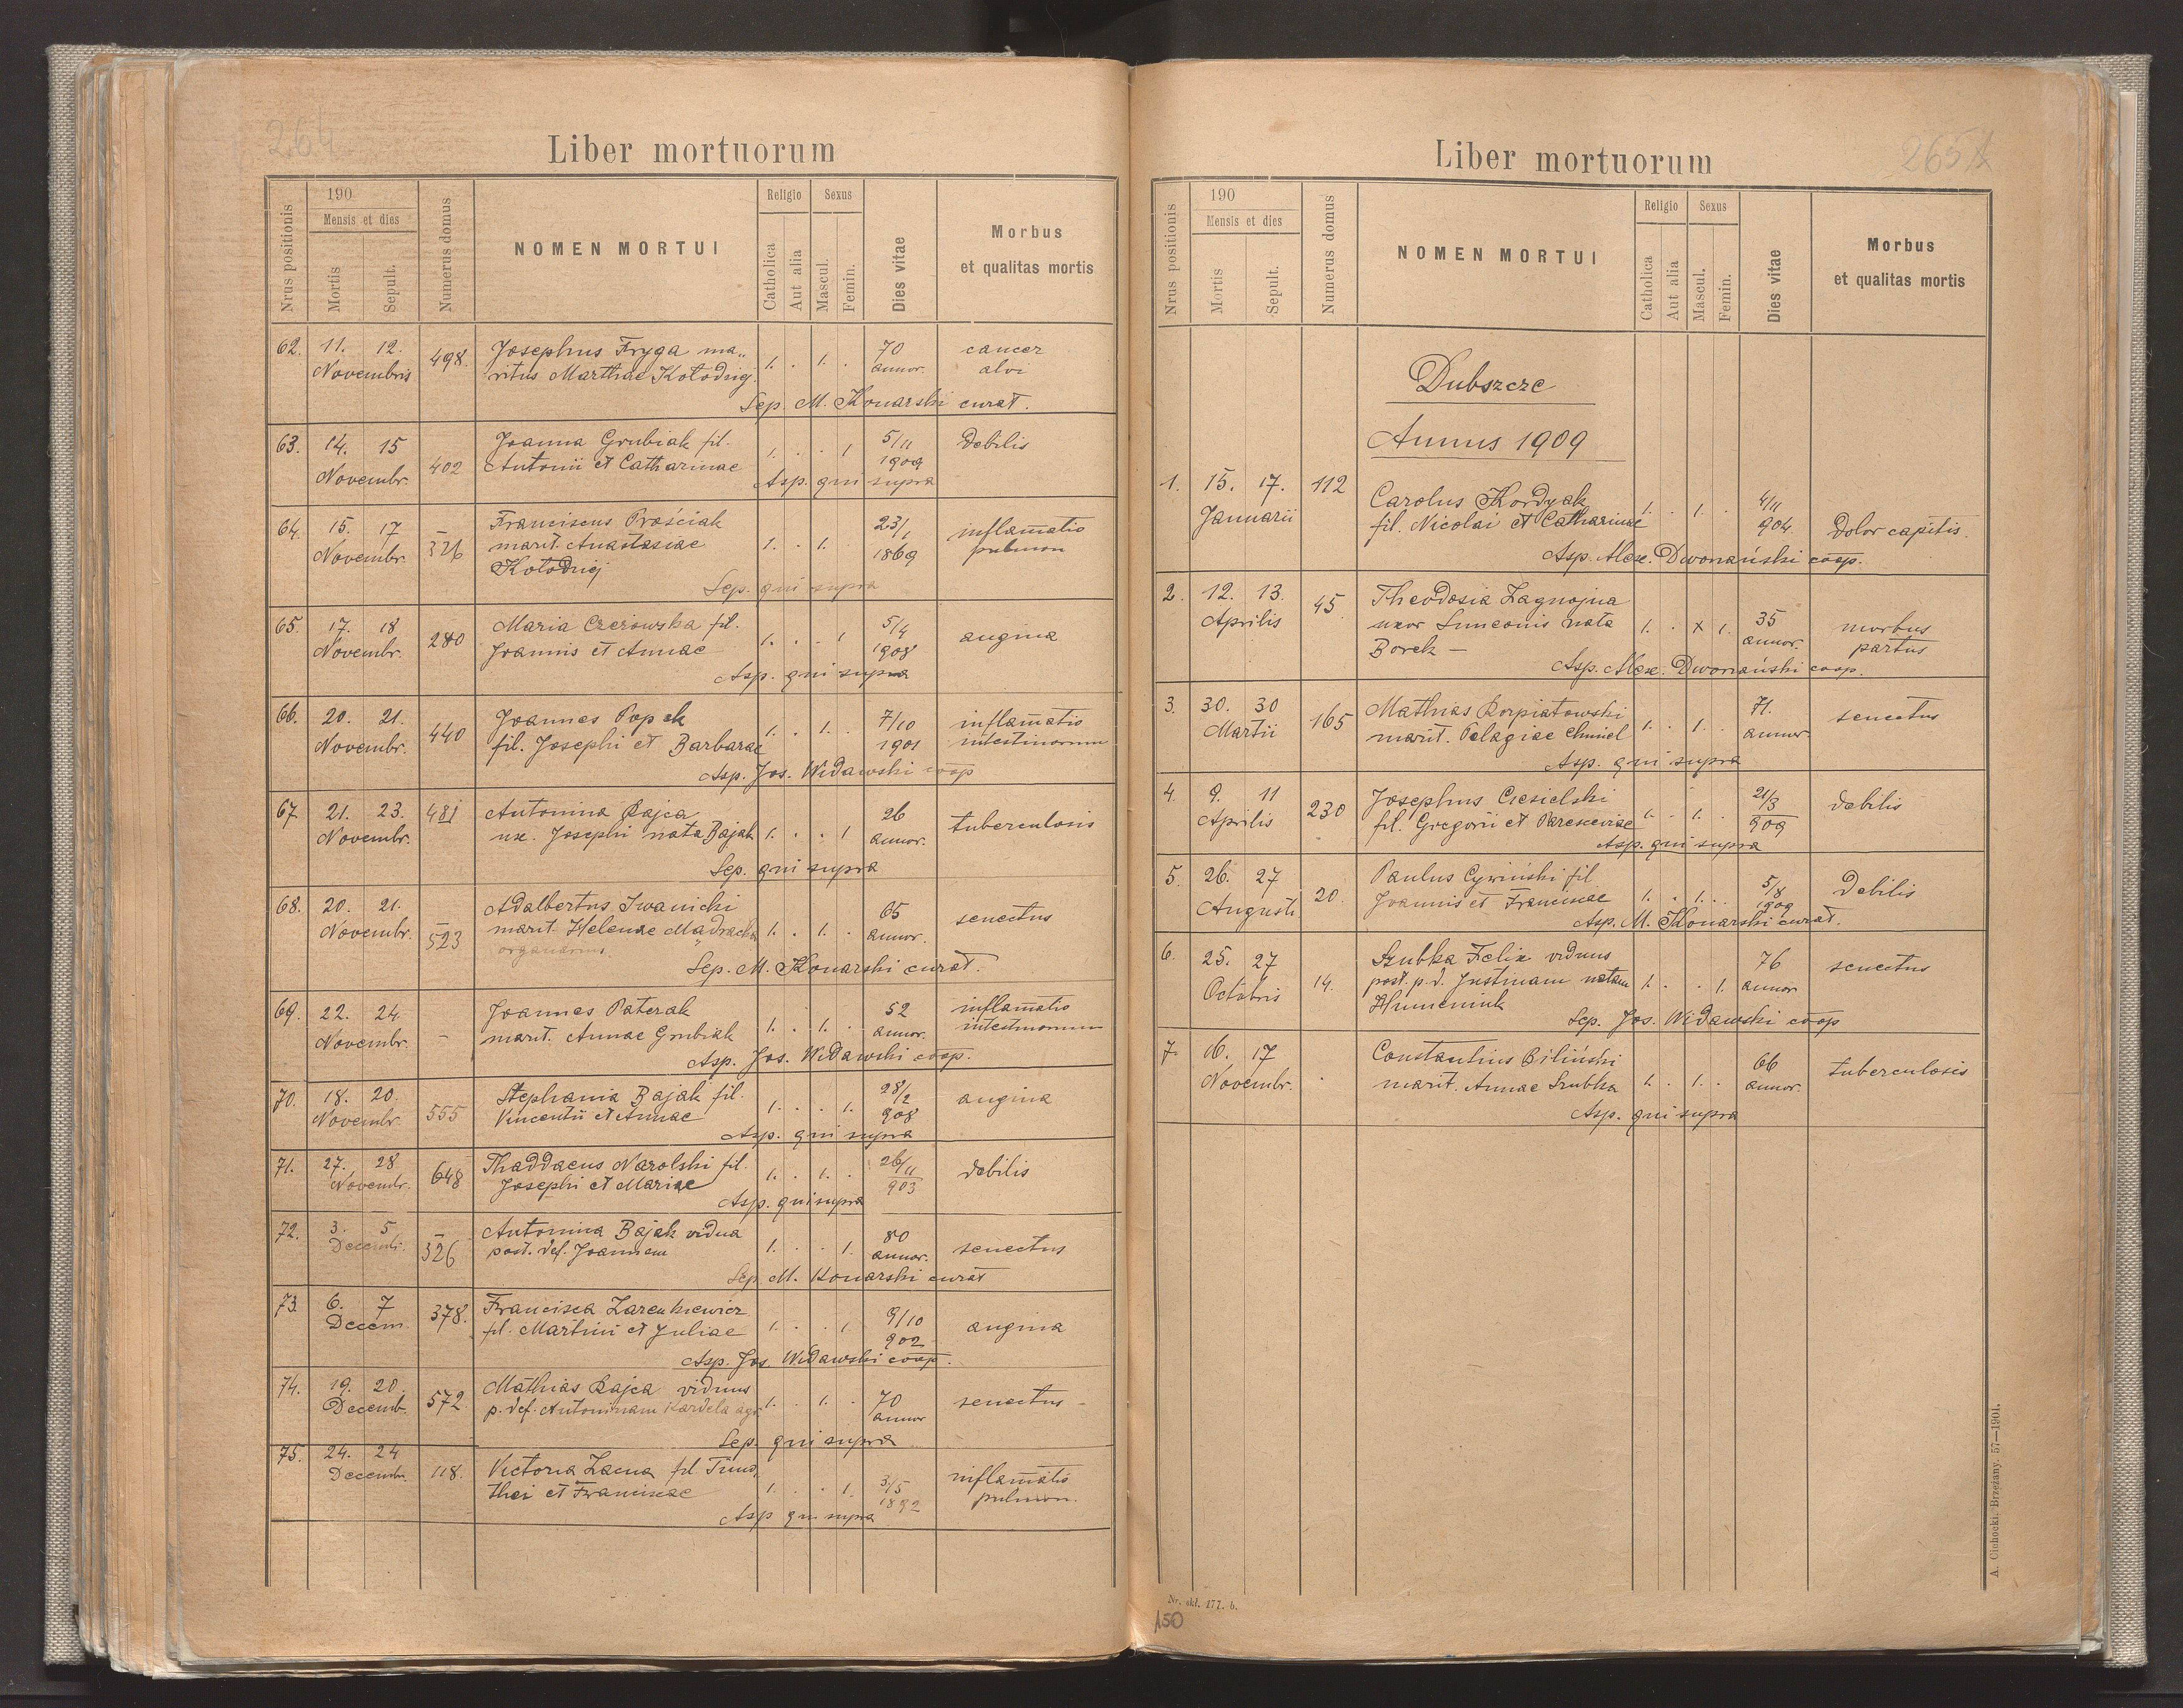 264
Liber mortuorum
Nrus positionis
190
Mensis et dies
Mortis
Sepult.
Numerus domus
NOMEN MORTUI
Religio
Catholica
Aut alia
Sexus
Mascul.
Femin.
Dies vitae
Morbus
et qualitas mortis
62. 11. 12. 498. Josephus Fryga ma„ 70 cancer
Novembris ritus Marthae Kołodziej 1. . 1. . annor. alvi
Sep. M. Konarski curat.
63. 14. 15 402 Joanna Grubiak fil. 5/11 Debilis
Novembr. Antonii et Catharinae 1. . . 1 1909
Asp. qui supra
64. 15. 17 326 Franciscus Prościak 23/1 inflamatio
Novembr. marit. Anastasiae 1. . 1. . 1869 pulmon
Kołodziej
Sep. qui supra
65. 17. 18 280 Maria Czerowska fil. 5/4 angina
Novembr. Joannis et Annae 1. . . 1 1908
Asp. qui supra
66. 20. 21. 440 Joannes Popek 7/10 inflamatio
Novembr. fil. Josephi et Barbarae 1. . 1. . 1901 intestinorum
Asp. Jos. Widawski coop
67 21. 23. 481 Antonina Rajca 26 tuberculosis
Novembr. ux. Josephi nata Bajak 1. . . 1 annor.
Sep. qui supra
68. 20. 21. 523 Adalbertus Iwanicki 65 senectus
Novembr. marit. Helenae 1. . 1. . annor.
organarius.
Sep. M. Konarski curat.
69. 22. 24. – Joannes Paterak 52 inflamatio
Novembr. marit. Annae Grubiak 1. . 1. . annor. intestinorum
Asp. Jos. Widawski coop.
70. 18. 20. 555 Stephania Bajak fil. 28/2 angina
Novembr. Vincentii et Annae 1. . . 1. 908
Asp. qui supra
71. 27. 28 648 Thaddaeus Narolski fil. 26/11 debilis
Novembr. Josephi et Mariae 1. . 1. . 903
Asp. qui supra
72. 3. 5 326 Antonina Bajak vidua 80 senectus
Decemb. post. def. Joannem 1. . . 1. annor.
Sep. M. Konarski curat
73. 6. 7 378. Francisca Zarenkiewicz 9/10 angina
Decem. fil. Martini et Juliae 1. . . 1 902
Asp. Jos. Widawski coop.
74. 19. 20. 572 Mathias Rajca viduus 70 senectus –
Decemb. p. def. Antoninam Kardela agr. 1. . 1. . annor
Sep. qui supra
75. 24. 24 118. Victoria Zacna fil. Timo, 3/5 inflamatio
Decembr. thei et Franciscae 1. . . 1. 1892 pulmon.
Asp qui supra
265
Liber mortuorum
Nrus positionis
190
Mensis et dies
Mortis
Sepult.
Numerus domus
NOMEN MORTUI
Religio
Catholica
Aut alia
Sexus
Mascul.
Femin.
Dies vitae
Morbus
et qualitas mortis
Dubszcze
Annus 1909
1. 15. 17. 112 Carolus Kordyak 4/11
Januarii fil. Nicolai et Catharinae 1. . 1. . 904. Dolor capitis.
Asp. Alex. Dwornański coop.
2. 12. 13. 45 Theodosia Zagnojna 35 morbus
Aprilis uxor Simeonis nata 1. . x 1. annor. partus
Borek –
Asp. Alex. Dwornański coop.
3. 30. 30 165 Mathias Korpiatowski 71. senectus
Martii marit. Pelagiae Chmiel 1. . 1. . annor
Asp. qui supra
4. 9. 11 230 Josephus Ciesielski 21/3 debilis
Aprilis fil. Gregorii et Parasceviae 1. . 1. . 909
Asp. qui supra
5. 26. 27 20. Paulus Cywiński fil. 5/8 Debilis
Augusti Joannis et Franciscae 1. . 1. . 1909
Asp. M. Konarski curat.
6. 25. 27 14. Szubka Felix viduus 76 senectus
Octobris post. p. d. Justinam natam 1. . . 1. annor
Humeniuk
Sep. Jos. Widawski coop
7. 16. 17 . Constantius Biliński 66 tuberculosis
Novembr. marit. Annae Szubka 1. . 1. . annor.
Asp. qui supra
A. Cichocki. Brzeżany. 57—1901.
Nr. skł. 177. b.
150